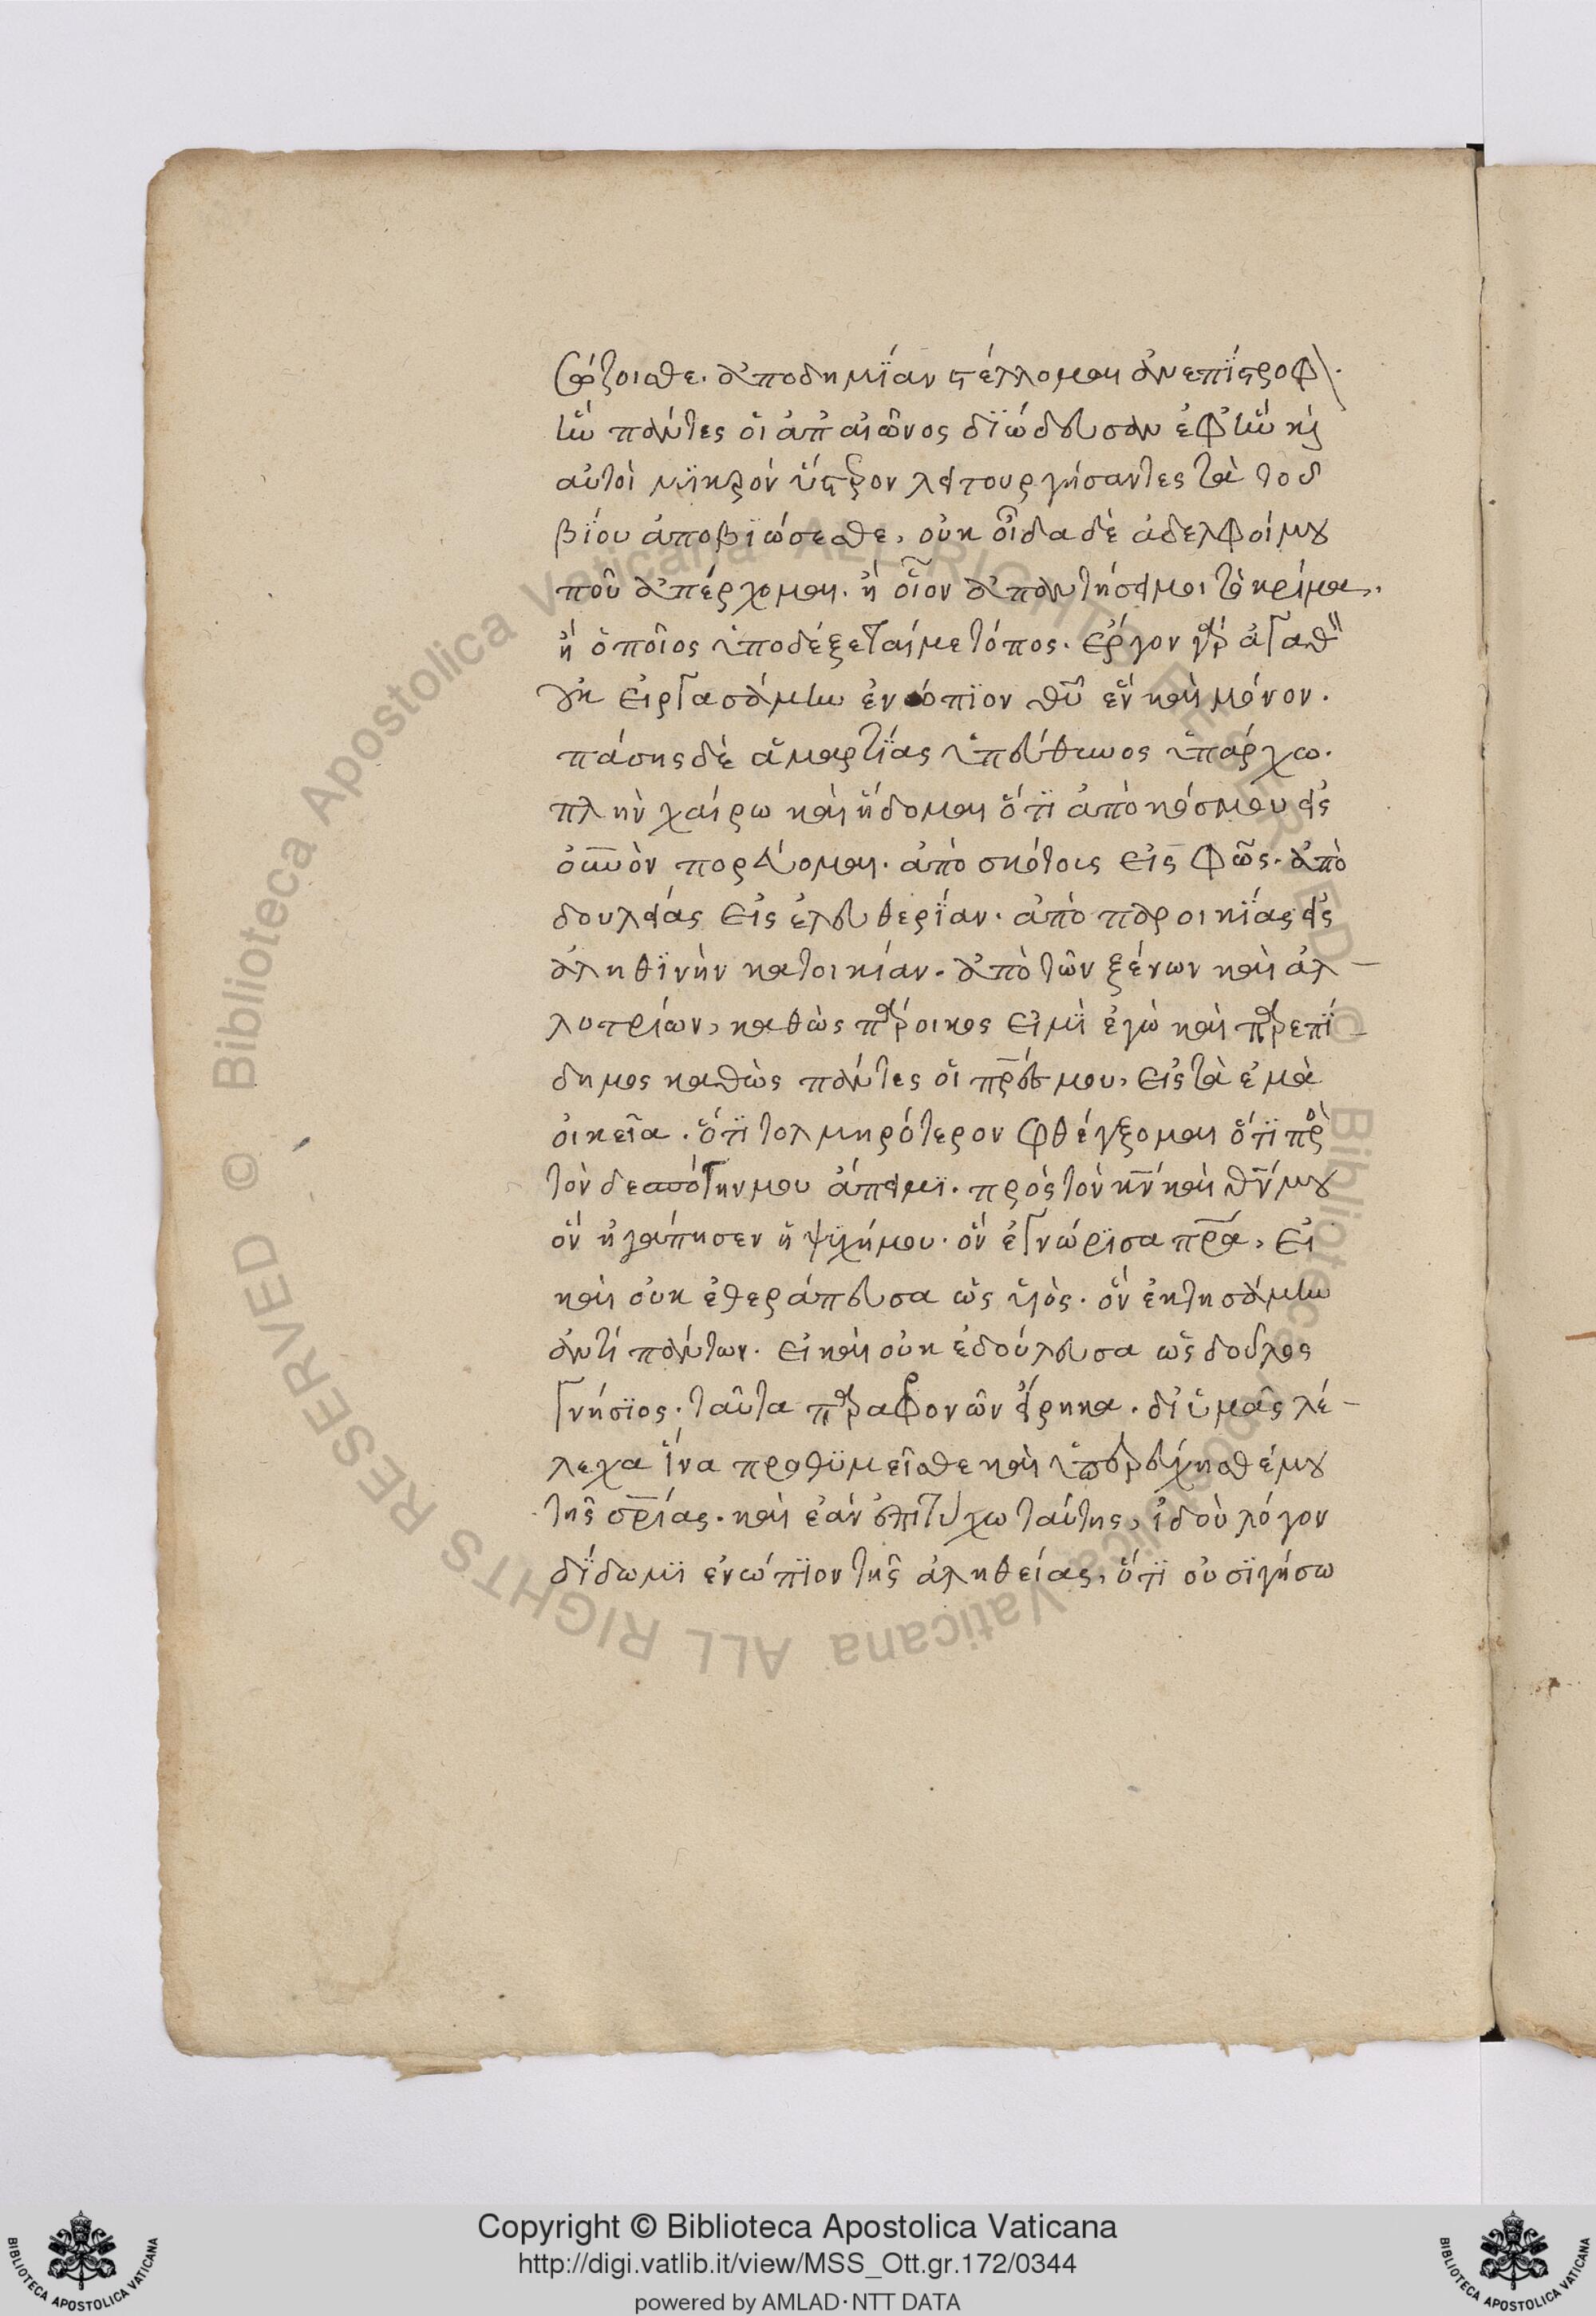 σώζοισθε. ἀποδημΐαν στέλλομαι ἀνεπΐστροφ
ἣν πάντες οἱ ἀπ αἰῶνος δϊώδευσαν ἐφ ἣν καὶ
αὐτοὶ μϊκρὸν ὕστερον λειτουργήσαντες τὰ τοῦ
βΐου ἀποβϊώσεσθε, οὐκ οἶδα δὲ ἀδελφοί μου
ποῦ ἀπέρχομαι. ἢ οἷον ἀπαντήσει μοι τὸ κρίμα.
ἢ ὁποῖος ὑποδέξεταί με τόπος. ἔργον γὰρ ἀγαθὸν
οὐκ εἰργασάμην ἐνώπϊον θῦ ἓν καὶ μόνον.
πάσης δὲ ἁμαρτΐας ὑπεύθυνος ὑπάρχω.
πλὴν χαίρω καὶ ἥδομαι ὅτϊ ἀπὸ κόσμου εἰς
οὐνὸν πορεύομαι. ἀπὸ σκότους εἰς φῶς. ἀπὸ
δουλείας εἰς ἐλευθερΐαν. ἀπὸ παροικΐας εἰς
ἀληθϊνὴν κατοικίαν. ἀπὸ τῶν ξένων καὶ ἀλ-
λοτρίων, καθὼς πάροικος εἰμῒ ἐγὼ καὶ παρεπΐ-
δημος καθὼς πάντες οἱ πρές μου, εἰς τὰ ἐμὰ
οἰκεῖα. ὅτϊ τολμηρότερον φθέγξομαι ὅτϊ πρὸς
τὸν δεσπότην μου ἄπειμϊ. πρὸς τὸν κν καὶ θν μου
ὃν ἠγάπησεν ἡ ψϋχή μου. ὃν ἐγνώρϊσα πρα, εἰ
καὶ οὐκ ἐθεράπευσα ὡς υἱὸς. ὃν ἐκτησάμην
ἀντὶ πάντων. εἰ καὶ οὐκ ἐδούλευσα ὡς δοῦλος
γνήσϊος. ταῦτα παραφρονῶν εἴρηκα. δι ὑμᾶς λέ-
λεχα ἵνα προθϋμεῖσθε καὶ ὑπερεύχησθέ μου
τῆς σρίας. καὶ ἐὰν ἐπιτύχω ταύτης, ἰδοὺ λόγον
δΐδωμϊ ἐνώπϊον τῆς ἀληθείας, ὅτϊ οὐ σϊγήσω
Copyright © Biblioteca Apostolica Vaticana
http://digi.vatlib.it/view/MSS_Ott.gr.172/0344
powered by AMLAD·NTT DATA
BIBLIOTECA APOSTOLICA VATICANA
BIBLIOTECA APOSTOLICA VATICANA
© Biblioteca Apostolica Vaticana ALL RIGHTS RESERVED
© Biblioteca Apostolica Vaticana ALL RIGHTS RESERVED